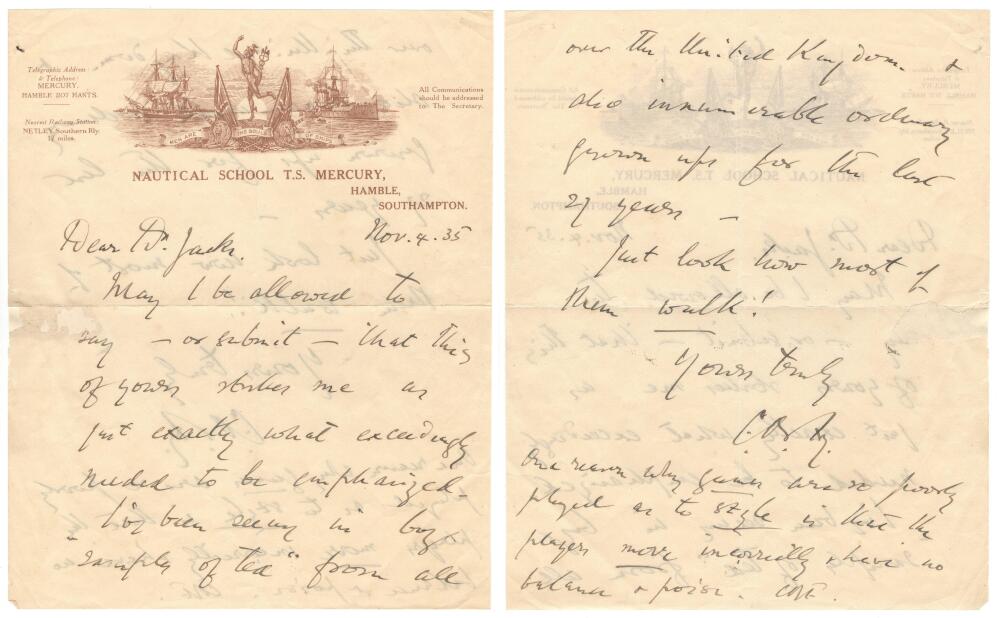 Telegraphic Address
& Telephone:
MERCURY.
HAMBLE 2107 HANTS.
Nearest Railway Station:
NETLEY, Southern Rly.
1½ miles.
All Communications
should be addressed
to The Secretary.
MEN ARE THE SOULS OF SHIPS
NAUTICAL SCHOOL T.S. MERCURY,
HAMBLE,
SOUTHAMPTON.
Nov. 4. 35
Dear Dr. Jacks.
May I be allowed to
say – or submit – that this
of yours strikes me as
just exactly what exceedingly
needed to be emphasized –
I've been seeing in boys
"samples of tea" from all
over the United Kingdom. &
also innumerable ordinary
grown ups for the last
27 years –
Just look how most of
them walk!
Yours truly
C.B. Fry.
One reason why games are so poorly
played as to style is that the
players move incorrectly & have no
balance & poise. CBF.